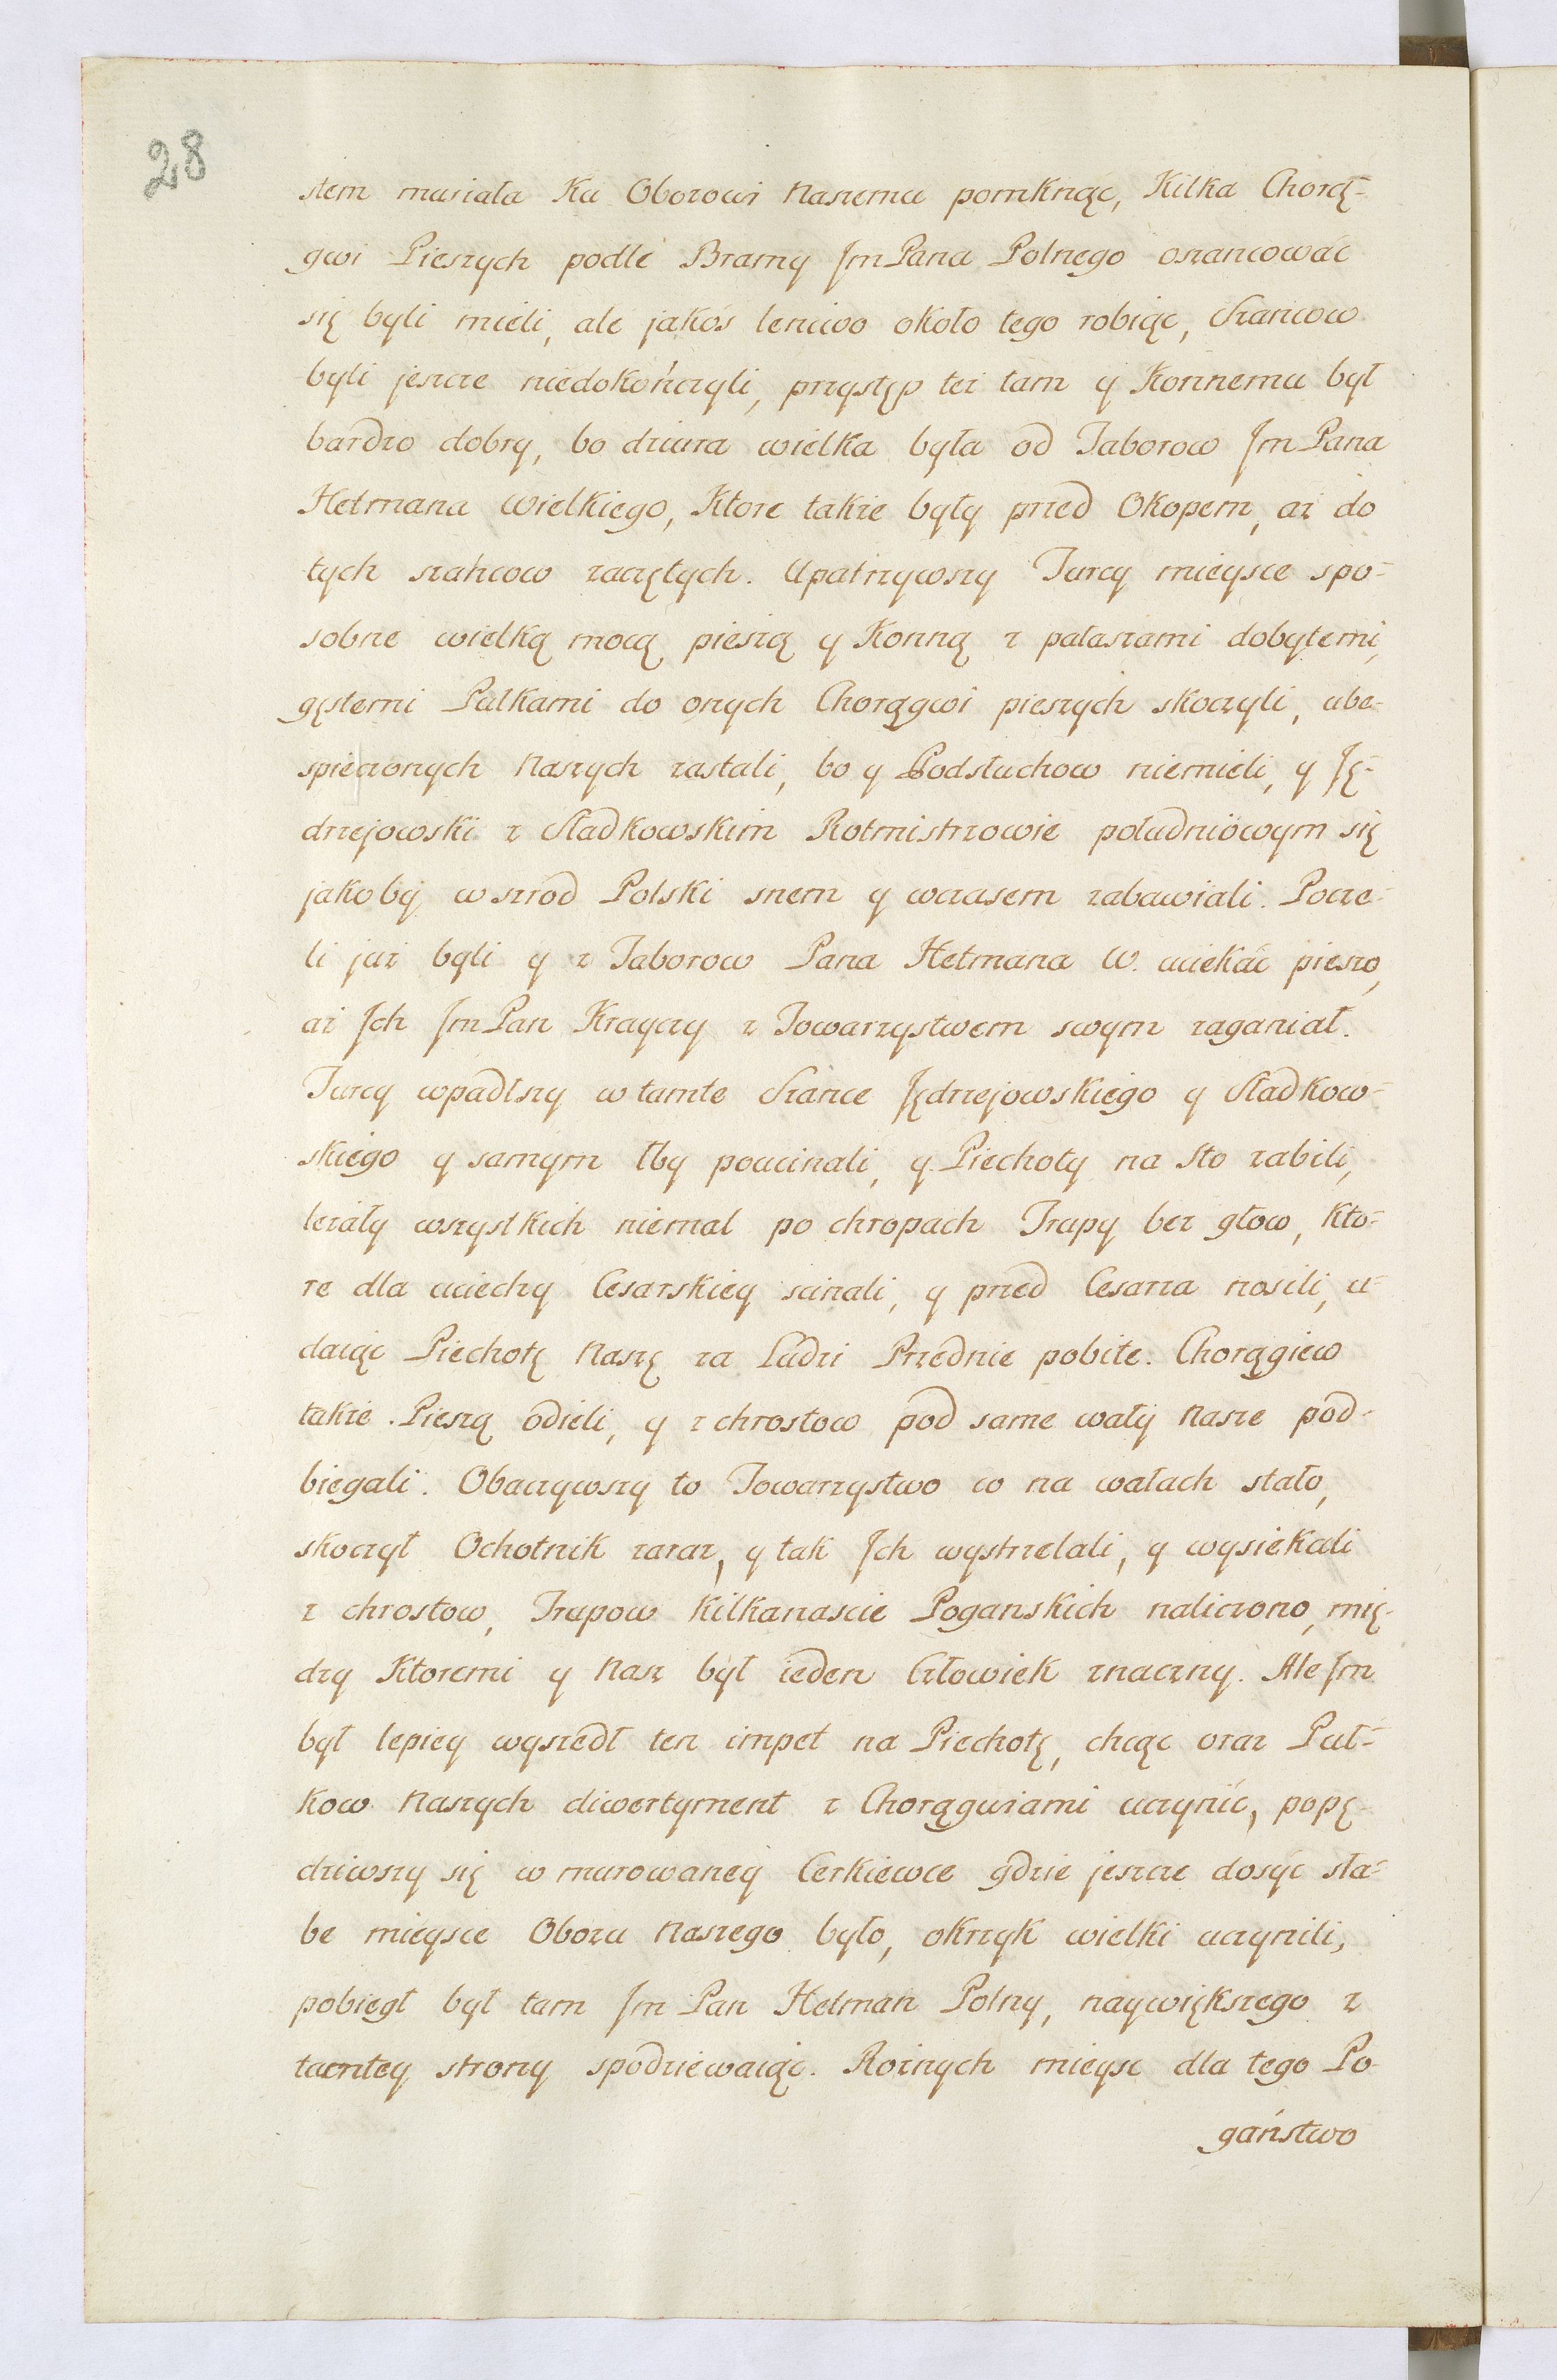 28
stem musiała Ku Obozowi Naszemu pomknąc, Kilka Chorą-
gwi Pieszych podle Bramy Jm Pana Polnego oszancowac
się byli mieli, ale jakos leniwo około tego robiąc, Szancow
byli jeszcze niedokończyli, przystęp też tam y Konnemu był
bardzo dobry, bo dziura wielka była od Taborow Jm Pana
Hetmana Wielkiego, Ktore takze były przed Okopem, az do
tych szańcow zaczętych. Upatrzywszy Turcy mieysce spo-
sobne wielką mocą pieszą y Konną z pałaszami dobytemi,
gęstemi Pułkami do onych Chorągwi pieszych skoczyli, ube-
spieczonych Naszych zastali, bo y Podsłuchow niemieli, y Ję-
drzejowski z Sladkowskim Rotmistrzowie południowym się
jakoby w szrod Polski snem y wczasem zabawiali. Poczę-
li już byli y z Taborow Pana Hetmana W. uciekać pieszo,
az Jch Jm Pan Krayczy z Towarzystwem swym zaganiał.
Turcy wpadłszy w tamte Szance Jędrzejowskiego y Sladkow-
skiego y samym łby poucinali, y Piechoty na Sto zabili,
leżały wszystkich niemal po chropach Trupy bez głow, Kto-
re dla uciechy Cesarskiey scinali, y przed Cesarza nosili, u-
daiąc Piechotę Naszę za Ludzi Przednie pobite. Chorągiew
takze Pieszą odieli, y z chrostow pod same wały Nasze pod-
biegali. Obaczywszy to Towarzystwo co na wałach stało,
skoczył Ochotnik zaraz, y tak Jch wystrzelali, y wysiekali
z chrostow, Trupow Kilkanascie Poganskich naliczono, mię-
dzy Ktoremi y Nasz był ieden Człowiek znaczny. Ale Jm
był lepiey wyszedł ten impet na Piechotę, chcąc oraz Puł-
Kow Naszych diwertyment z Chorągwiami uczynić, popę-
dziwszy się w murowaney Cerkiewce gdzie jeszcze dosyc sła-
be mieysce Obozu Naszego było, okrzyk wielki uczynili,
pobiegł był tam Jm Pan Hetman Polny, naywiększego z
tamtey strony spodziewaiąc. Rożnych mieysc dla tego Po-
gaństwo